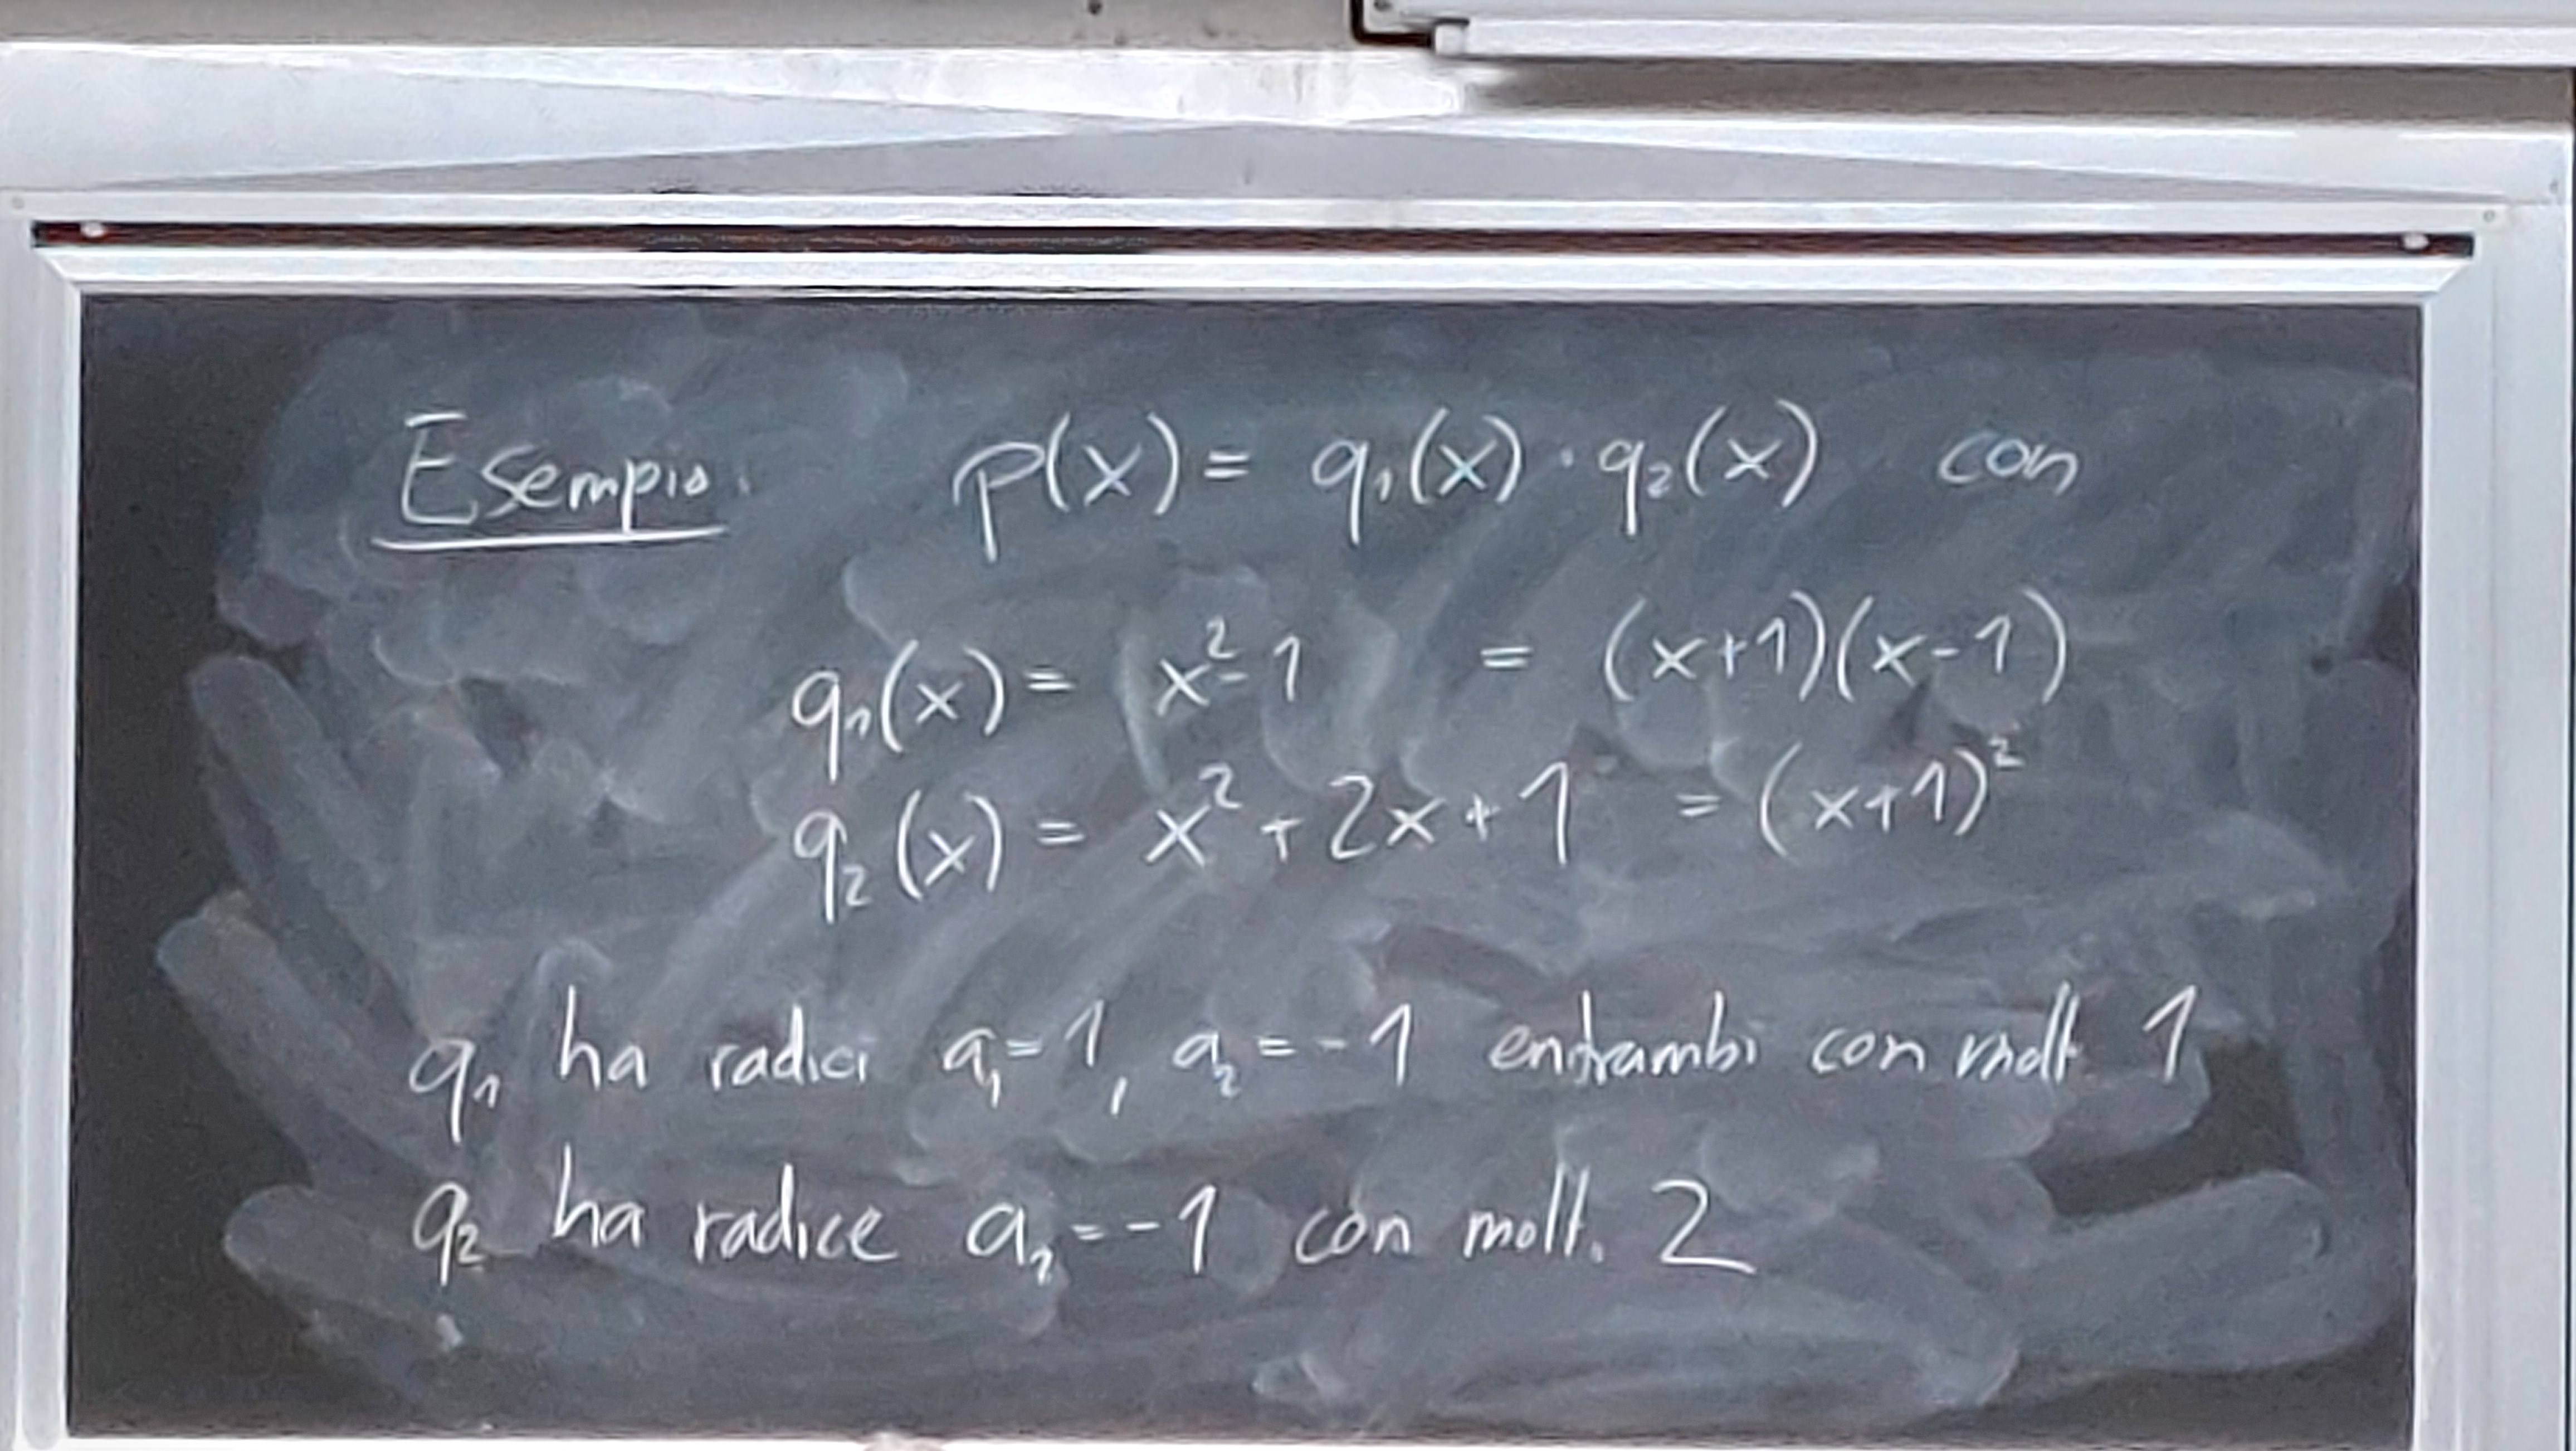 Esempio. p(x) = q₁(x) · q₂(x) con
q₁(x) = x² - 1 = (x+1)(x-1)
q₂(x) = x² + 2x + 1 = (x+1)²
q₁ ha radici a₁ = 1, a₂ = -1 entrambi con molt. 1
q₂ ha radice a₂ = -1 con molt. 2